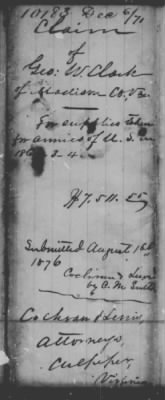 10183 Dec 6/71
Claim
of
Geo. W. Clark
of Madison Co. Va.
For supplies taken
for armies of U. S. in
186 3. 4.
Submitted August
1876
by A. M.
Cochran & Lewis,
attorneys,
Culpeper,
Virginia